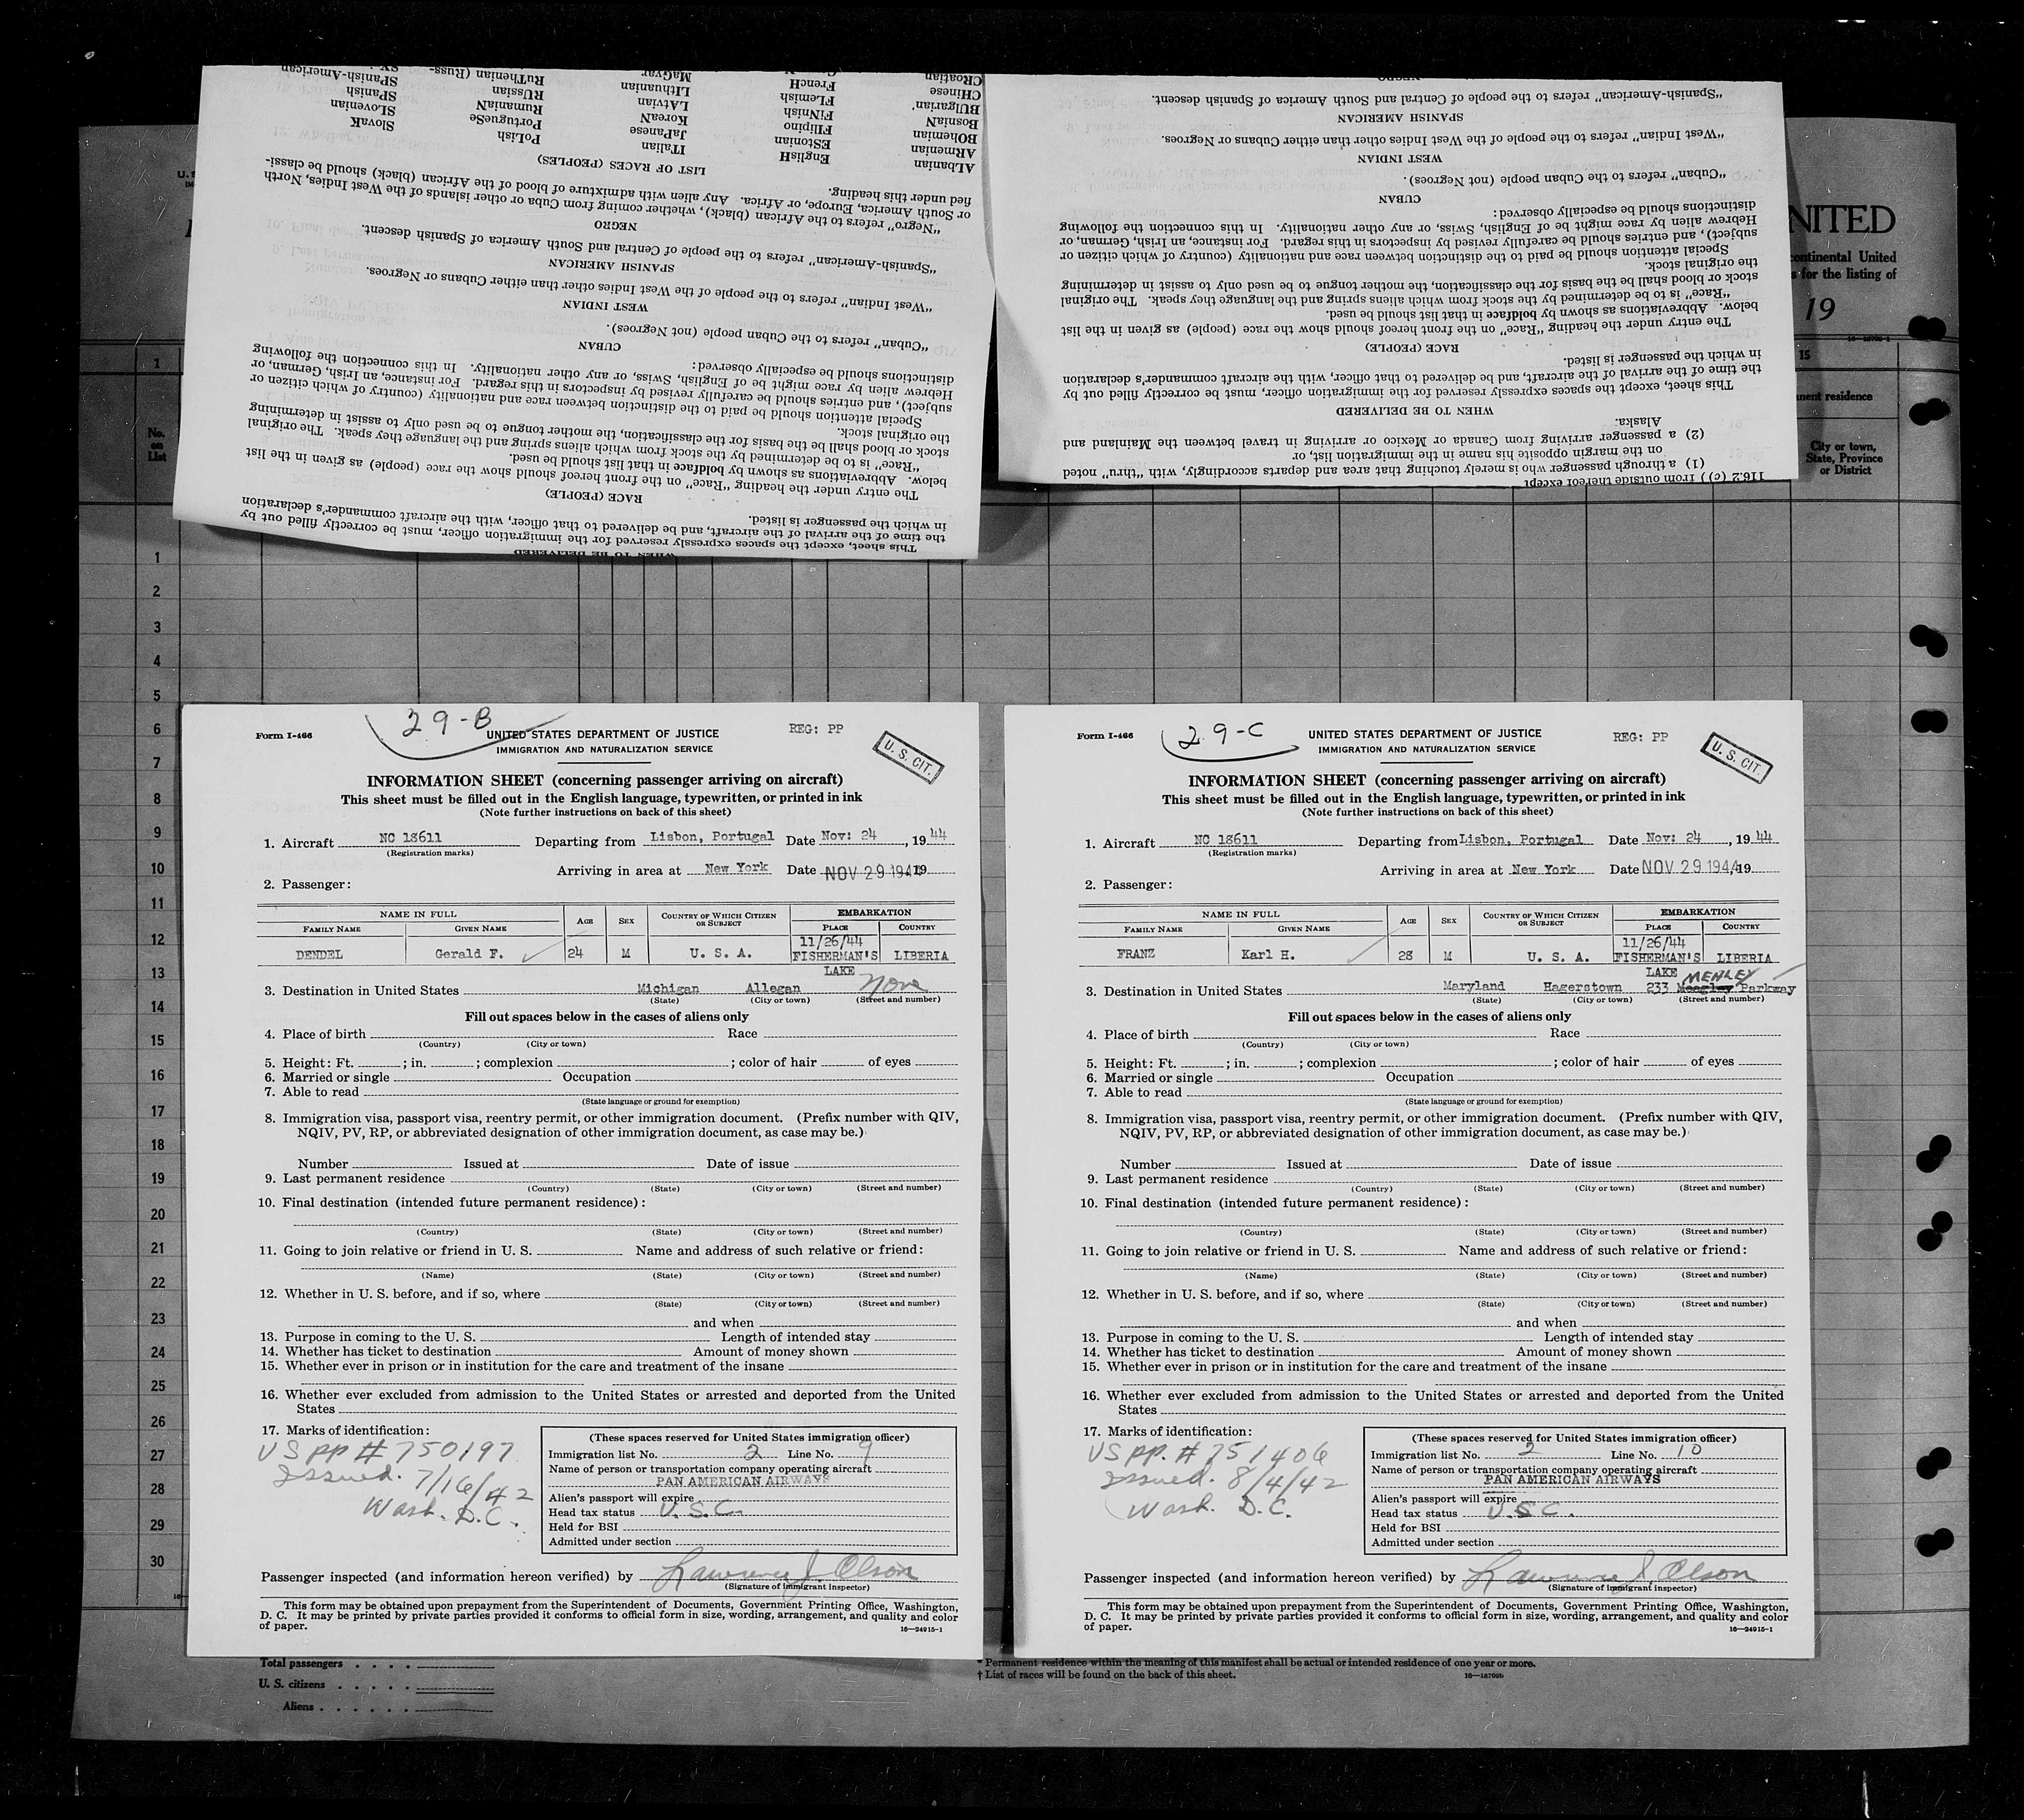 SPanish-American
RuThenian (Russ-
MaGyar
CRoatian
SPanish
RUssian
LIthuanian
FrencH
CHinese
SLOvenian
RumaniaN
LAtvian
FLemish
BUlgarian
SlovaK
PortugueSe
KoreaN
FiNnish
BosniaN
PolisH
JaPanese
FIlipino
BOhemian
ITalian
EStonian
ARmenian
EnglisH
ALbanian
LIST OF RACES (PEOPLES)
fied under this heading.
or South America, Europe, or Africa. Any alien with admixture of blood of the African (black) should be classi-
"Negro" refers to the African (black), whether coming from Cuba or other islands of the West Indies, North
NEGRO
"Spanish-American" refers to the people of Central and South America of Spanish descent.
SPANISH AMERICAN
"West Indian" refers to the people of the West Indies other than either Cubans or Negroes.
WEST INDIAN
"Cuban" refers to the Cuban people (not Negroes).
CUBAN
distinctions should be especially observed:
Hebrew alien by race might be of English, Swiss, or any other nationality. In this connection the following
subject), and entries should be carefully revised by inspectors in this regard. For instance, an Irish, German, or
Special attention should be paid to the distinction between race and nationality (country of which citizen or
the original stock.
stock or blood shall be the basis for the classification, the mother tongue to be used only to assist in determining
"Race" is to be determined by the stock from which aliens spring and the language they speak. The original
below. Abbreviations as shown by boldface in that list should be used.
The entry under the heading "Race" on the front hereof should show the race (people) as given in the list
RACE (PEOPLE)
in which the passenger is listed.
the time of the arrival of the aircraft, and be delivered to that officer, with the aircraft commander's declaration
This sheet, except the spaces expressly reserved for the immigration officer, must be correctly filled out by
WHEN TO BE DELIVERED
NEGRO
"Spanish-American" refers to the people of Central and South America of Spanish descent.
SPANISH AMERICAN
"West Indian" refers to the people of the West Indies other than either Cubans or Negroes.
WEST INDIAN
"Cuban" refers to the Cuban people (not Negroes).
CUBAN
distinctions should be especially observed:
Hebrew alien by race might be of English, Swiss, or any other nationality. In this connection the following
subject), and entries should be carefully revised by inspectors in this regard. For instance, an Irish, German, or
Special attention should be paid to the distinction between race and nationality (country of which citizen or
the original stock.
stock or blood shall be the basis for the classification, the mother tongue to be used only to assist in determining
"Race" is to be determined by the stock from which aliens spring and the language they speak. The original
below. Abbreviations as shown by boldface in that list should be used.
The entry under the heading "Race" on the front hereof should show the race (people) as given in the list
RACE (PEOPLE)
in which the passenger is listed.
the time of the arrival of the aircraft, and be delivered to that officer, with the aircraft commander's declaration
This sheet, except the spaces expressly reserved for the immigration officer, must be correctly filled out by
WHEN TO BE DELIVERED
Alaska.
(2) a passenger arriving from Canada or Mexico or arriving in travel between the Mainland and
on the margin opposite his name in the immigration list, or
(1) a through passenger who is merely touching that area and departs accordingly, with "thru" noted
116.2 (c)) from outside thereof except
NITED
continental United
s for the listing of
19
1
15
nent residence
No.
on
List
City or town,
State, Province
or District
1
2
3
4
5
6
7
8
9
10
11
12
13
14
15
16
17
18
19
20
21
22
23
24
25
26
27
28
29
30
29-B
Form I-466
UNITED STATES DEPARTMENT OF JUSTICE
REG: PP
IMMIGRATION AND NATURALIZATION SERVICE
U. S. CIT.
INFORMATION SHEET (concerning passenger arriving on aircraft)
This sheet must be filled out in the English language, typewritten, or printed in ink
(Note further instructions on back of this sheet)
1. Aircraft NC 18611 Departing from Lisbon, Portugal Date Nov: 24, 1944
(Registration marks)
Arriving in area at New York Date NOV 29 1944, 19
2. Passenger:
NAME IN FULL AGE SEX COUNTRY OF WHICH CITIZEN OR SUBJECT EMBARKATION
FAMILY NAME GIVEN NAME PLACE COUNTRY
11/26/44
DENDEL Gerald F. 24 M U. S. A. FISHERMAN'S LIBERIA
LAKE
3. Destination in United States Michigan Allegan None
(State) (City or town) (Street and number)
Fill out spaces below in the cases of aliens only
4. Place of birth Race
(Country) (City or town)
5. Height: Ft. ; in. ; complexion ; color of hair of eyes
6. Married or single Occupation
7. Able to read
(State language or ground for exemption)
8. Immigration visa, passport visa, reentry permit, or other immigration document. (Prefix number with QIV,
NQIV, PV, RP, or abbreviated designation of other immigration document, as case may be.)
Number Issued at Date of issue
9. Last permanent residence
(Country) (State) (City or town) (Street and number)
10. Final destination (intended future permanent residence):
(Country) (State) (City or town) (Street and number)
11. Going to join relative or friend in U. S. Name and address of such relative or friend:
(Name) (State) (City or town) (Street and number)
12. Whether in U. S. before, and if so, where
(State) (City or town) (Street and number)
and when
13. Purpose in coming to the U. S. Length of intended stay
14. Whether has ticket to destination Amount of money shown
15. Whether ever in prison or in institution for the care and treatment of the insane
16. Whether ever excluded from admission to the United States or arrested and deported from the United
States
17. Marks of identification:
US PP # 750197
Issued. 7/16/42
Wash. D.C.
(These spaces reserved for United States immigration officer)
Immigration list No. 2 Line No. 9
Name of person or transportation company operating aircraft
PAN AMERICAN AIRWAYS
Alien's passport will expire
Head tax status U.S.C.
Held for BSI
Admitted under section
Passenger inspected (and information hereon verified) by Lawrence J. Olson
(Signature of immigrant inspector)
This form may be obtained upon prepayment from the Superintendent of Documents, Government Printing Office, Washington,
D. C. It may be printed by private parties provided it conforms to official form in size, wording, arrangement, and quality and color
of paper.
16—24915-1
29-C
Form I-466
UNITED STATES DEPARTMENT OF JUSTICE
REG: PP
IMMIGRATION AND NATURALIZATION SERVICE
U. S. CIT.
INFORMATION SHEET (concerning passenger arriving on aircraft)
This sheet must be filled out in the English language, typewritten, or printed in ink
(Note further instructions on back of this sheet)
1. Aircraft NC 18611 Departing from Lisbon, Portugal Date Nov: 24, 1944
(Registration marks)
Arriving in area at New York Date NOV 29 1944, 19
2. Passenger:
NAME IN FULL AGE SEX COUNTRY OF WHICH CITIZEN OR SUBJECT EMBARKATION
FAMILY NAME GIVEN NAME PLACE COUNTRY
11/26/44
FRANZ Karl H. 28 M U. S. A. FISHERMAN'S LIBERIA
LAKE MEALEY
3. Destination in United States Maryland Hagerstown 233 Parkway
(State) (City or town) (Street and number)
Fill out spaces below in the cases of aliens only
4. Place of birth Race
(Country) (City or town)
5. Height: Ft. ; in. ; complexion ; color of hair of eyes
6. Married or single Occupation
7. Able to read
(State language or ground for exemption)
8. Immigration visa, passport visa, reentry permit, or other immigration document. (Prefix number with QIV,
NQIV, PV, RP, or abbreviated designation of other immigration document, as case may be.)
Number Issued at Date of issue
9. Last permanent residence
(Country) (State) (City or town) (Street and number)
10. Final destination (intended future permanent residence):
(Country) (State) (City or town) (Street and number)
11. Going to join relative or friend in U. S. Name and address of such relative or friend:
(Name) (State) (City or town) (Street and number)
12. Whether in U. S. before, and if so, where
(State) (City or town) (Street and number)
and when
13. Purpose in coming to the U. S. Length of intended stay
14. Whether has ticket to destination Amount of money shown
15. Whether ever in prison or in institution for the care and treatment of the insane
16. Whether ever excluded from admission to the United States or arrested and deported from the United
States
17. Marks of identification:
US PP. # 751406
Issued. 8/4/42
Wash. D.C.
(These spaces reserved for United States immigration officer)
Immigration list No. 2 Line No. 10
Name of person or transportation company operating aircraft
PAN AMERICAN AIRWAYS
Alien's passport will expire
Head tax status U.S.C.
Held for BSI
Admitted under section
Passenger inspected (and information hereon verified) by Lawrence J. Olson
(Signature of immigrant inspector)
This form may be obtained upon prepayment from the Superintendent of Documents, Government Printing Office, Washington,
D. C. It may be printed by private parties provided it conforms to official form in size, wording, arrangement, and quality and color
of paper.
16—24915-1
Total passengers
U. S. citizens
Aliens
* Permanent residence within the meaning of this manifest shall be actual or intended residence of one year or more.
† List of races will be found on the back of this sheet.
16—18709b